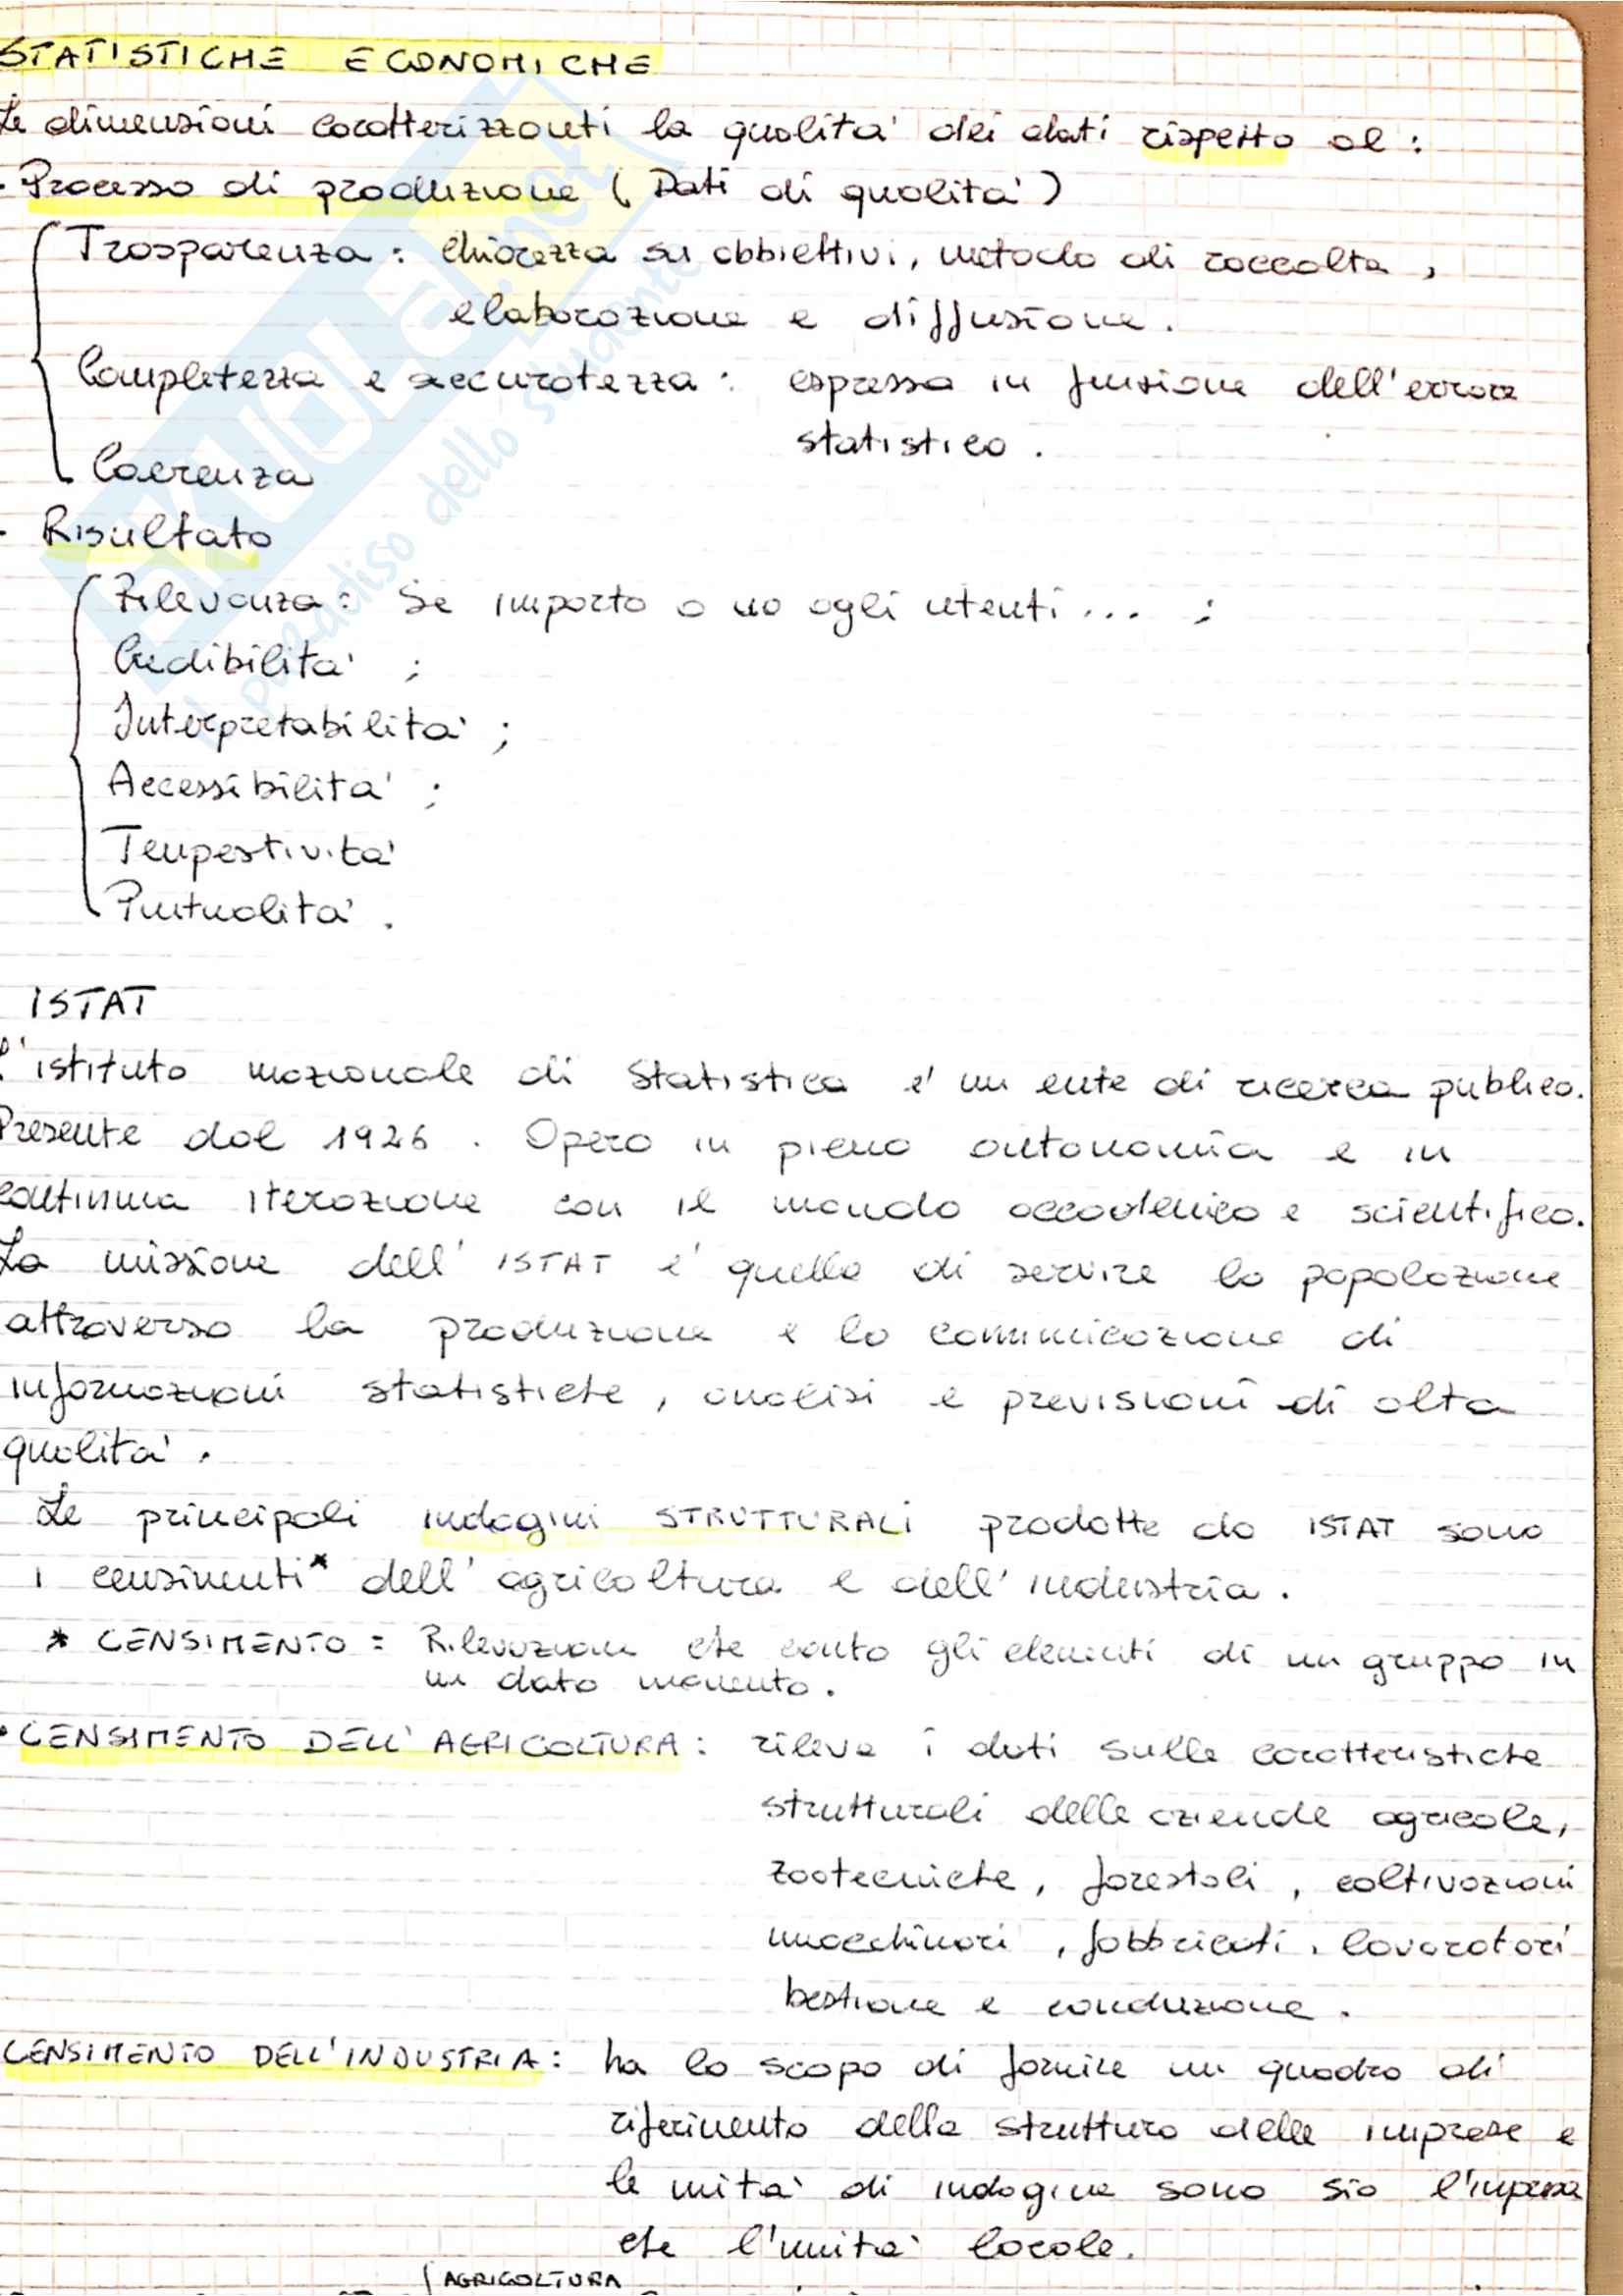 STATISTICHE ECONOMICHE
Le dimensioni caratterizzanti la qualita' dei dati rispetto al:
· Processo di produzione (Dati di qualita')
Trasparenza: Chiarezza su obbiettivi, metodo di raccolta,
elaborazione e diffusione.
Completezza e accuratezza: espressa in funzione dell'errore
statistico.
Coerenza
· Risultato
Rilevanza: Se importa o no agli utenti... ;
Credibilita' ;
Interpretabilita' ;
Accessibilita' ;
Tempestivita'
Puntualita' .
SKUOLA.net
il paradiso dello studente
ISTAT
L'istituto nazionale di Statistica e' un ente di ricerca publico.
Presente dal 1926 . Opera in piena autonomia e in
continua iterazione con il mondo accademico e scientifico.
La missione dell' ISTAT e' quella di servire la popolazione
attraverso la produzione e la comunicazione di
informazioni statistiche , analisi e previsioni di alta
qualita' .
Le principali indagini STRUTTURALI prodotte da ISTAT sono
i censimenti* dell' agricoltura e dell' industria .
* CENSIMENTO = Rilevazione che conta gli elementi di un gruppo in
un dato momento .
· CENSIMENTO DELL' AGRICOLTURA : rileva i dati sulle caratteristiche
strutturali delle aziende agricole,
zootecniche , forestali , coltivazioni
macchinari , fabbricati , lavoratori
bestiame e conduzione .
CENSIMENTO DELL'INDUSTRIA : ha lo scopo di fornire un quadro di
riferimento della struttura delle imprese e
le unita' di indagine sono sia l'impresa
che l'unita' locale .
AGRICOLTURA